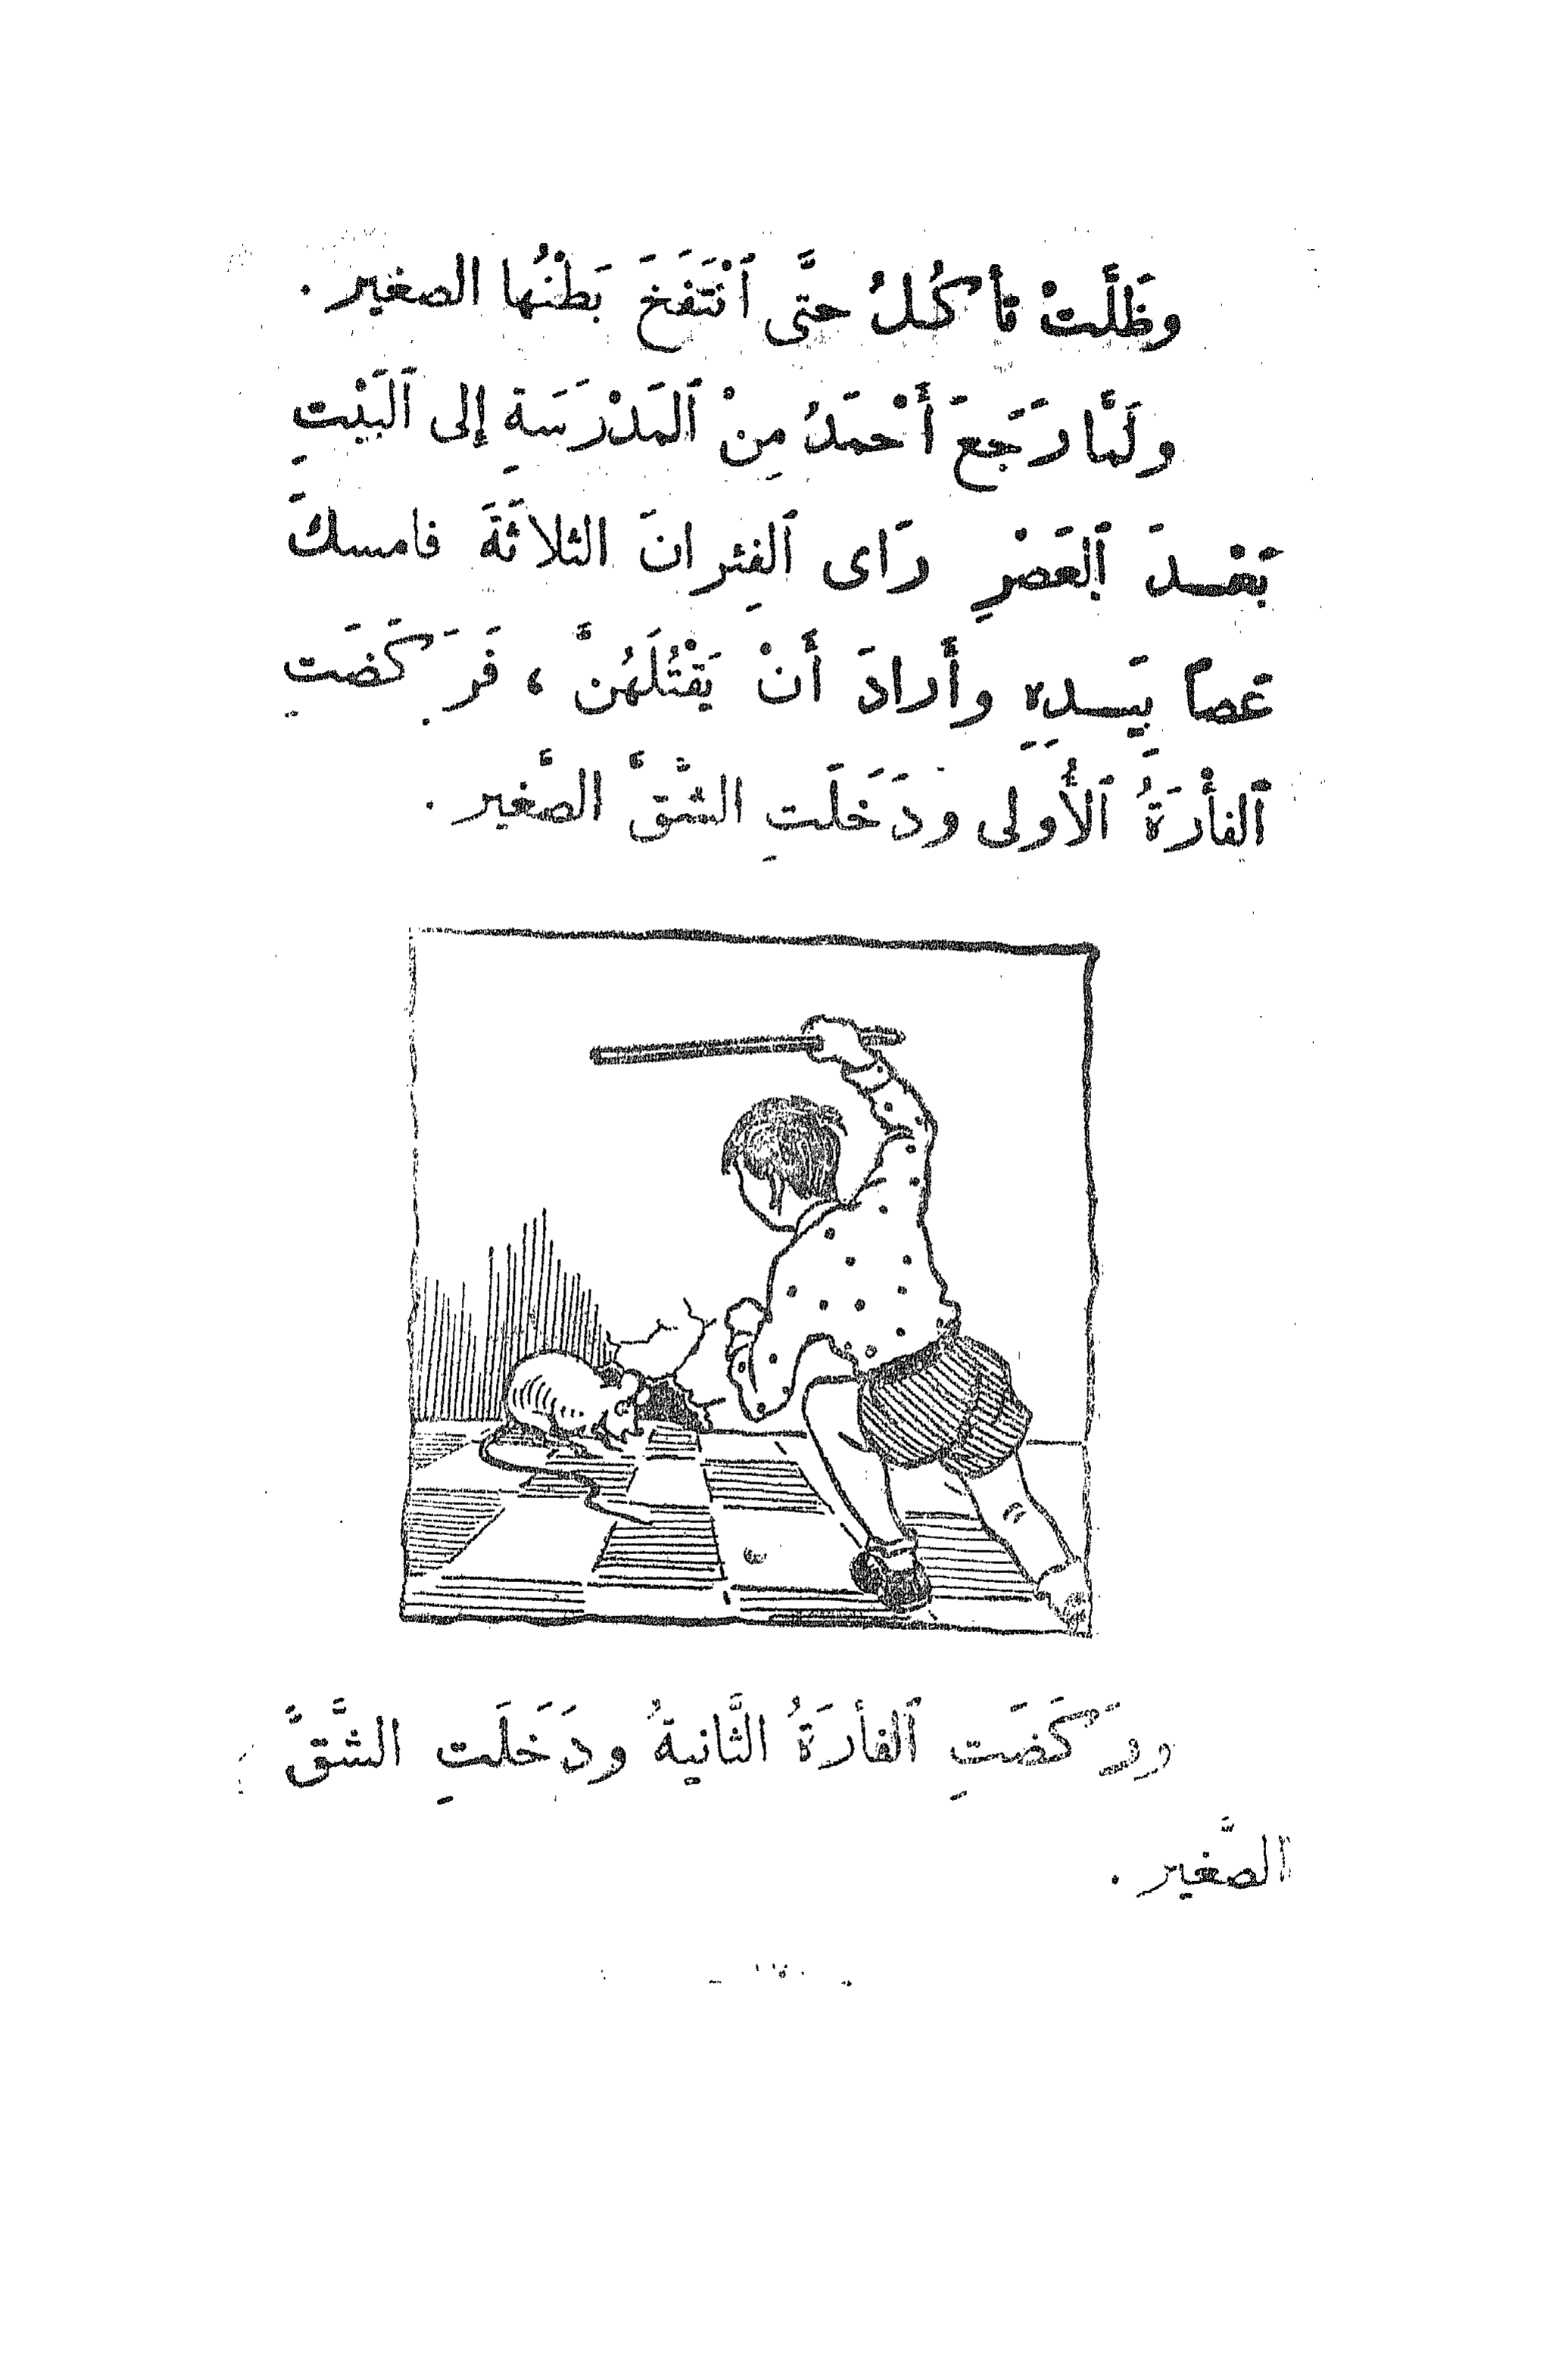 وظَلَّتْ تأكُلُ حتَّى ٱنْتَفَخَ بَطْنُها الصغير .
ولَمَّا رَجَعَ أَحْمَدُ مِنْ ٱلمَدْرَسَةِ إلى ٱلبَيْتِ
بَعْدَ ٱلعَصْرِ رَاى ٱلفِئرانَ الثلاثَةَ فامسكَ
عَصاً بيَدِهِ وأَرادَ أَنْ يَقْتُلَهُنَّ ، فَرَكَضَتِ
ٱلفأْرَةُ ٱلأُولى ودَخَلَتِ الشَّقَّ الصَّغير .
ورَكَضَتِ ٱلفأرَةُ الثَّانيةُ ودَخَلَتِ الشَّقَّ
الصَّغير .